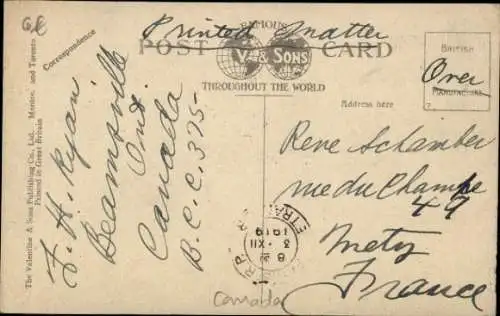 Ge
Printed Matter
FAMOUS
POST CARD
VAL & SONS
THROUGHOUT THE WORLD
Correspondence
The Valentine & Sons Publishing Co., Ltd., Montreal and Toronto
Printed in Great Britain
F. H. Ryan
Beamsville
Ont.
Canada
B.C.C. 375-
BRITISH
Over
MANUFACTURE
Address here
Rene Schamber
rue du Champé
47
Metz
France
3 · XII
1919
Canada